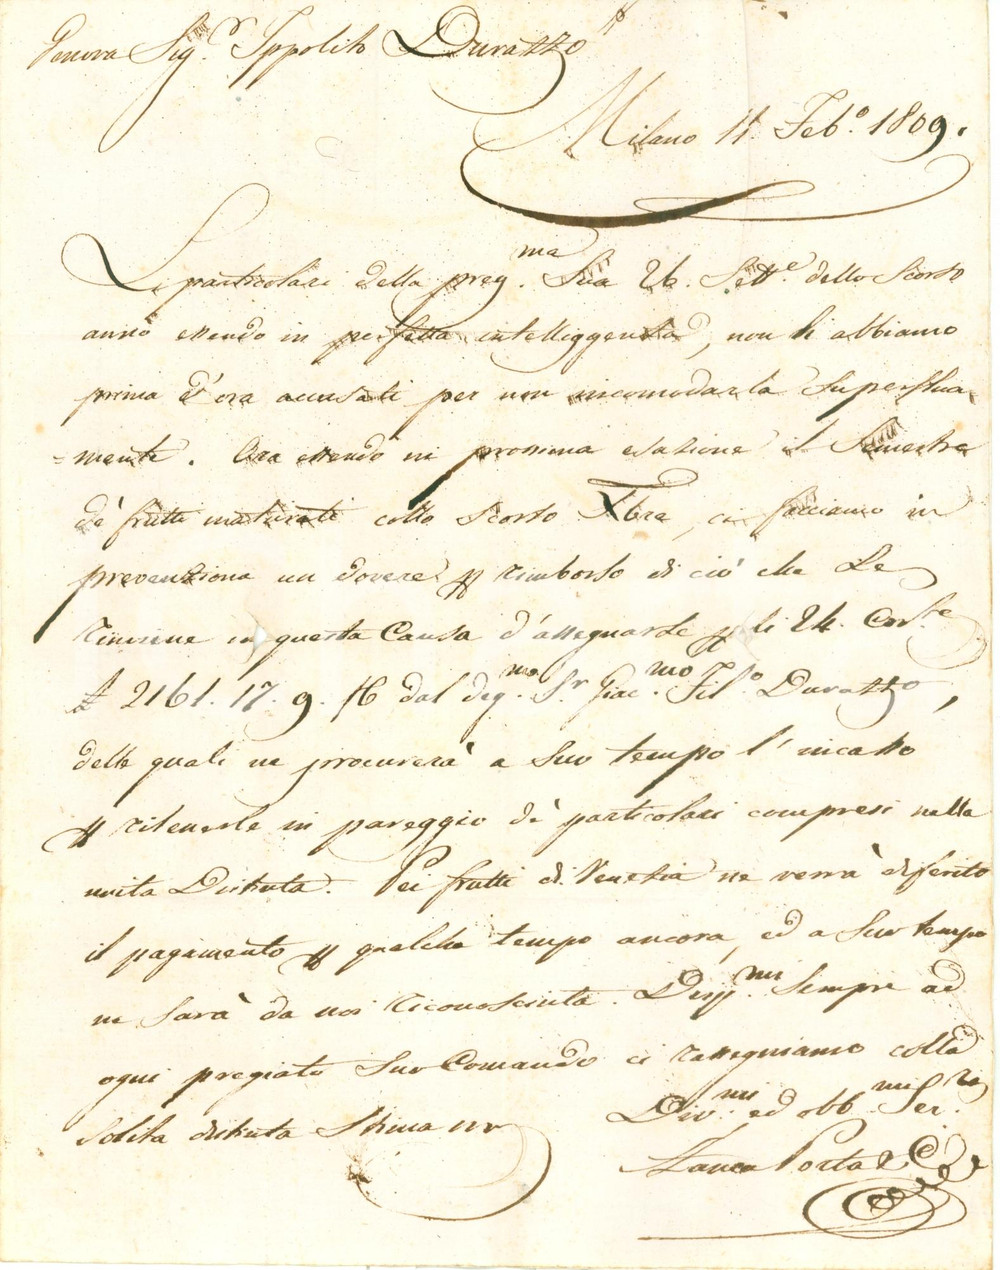 Genova Sig.r Ippolito Durazzo
Milano 11. Feb.o 1809.
Li particolari della preg.ma Sua 26. Sett.e dello scorso
anno essendo in perfetta intelliggenza, non li abbiamo
prima d'ora accusati per non incomodarla superflua
=mente. Ora essendo in prossima esazione il Semestre
de' frutti maturati collo scorso Xbre, ci facciamo in
prevenzione un dovere p rimborso di ciò che Le
rinviene in questa Causa d'assegnarle p li 24. Corr.te
£ 2161. 17. 9. f6 dal deg.mo S.r Giac.mo Fil.o Durazzo,
delle quali ne procurerà a suo tempo l'incasso
p ritenerle in pareggio de' particolari compresi nella
unita Distinta. Pei frutti di Venezia ne verrà diferito
il pagamento p qualche tempo ancora, ed a suo tempo
ne sarà da noi riconosciuta. Disp.mi sempre ad
ogni pregiato Suo Comando ci rassegniamo colla
solita distinta Stima
Div.mi ed obb.mi Ser.ri
Porta e C.